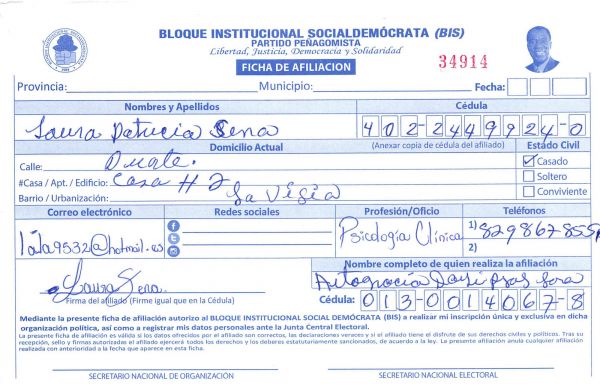 BLOQUE INSTITUCIONAL SOCIALDEMÓCRATA (BIS)
PARTIDO PEÑAGOMISTA
Libertad, Justicia, Democracia y Solidaridad
FICHA DE AFILIACION
34914
Provincia: Municipio: Fecha:
Nombres y Apellidos Cédula
Laura Patricia Sena 402-2449924-0
Domicilio Actual (Anexar copia de cédula del afiliado) Estado Civil
Calle: Duarte. Casado
#Casa / Apt. / Edificio: Casa # 2 Soltero
Barrio / Urbanización: La Vigia Conviviente
Correo electrónico Redes sociales Profesión/Oficio Teléfonos
lala9532@hotmail.es Psicología Clínica 1) 829867855
2)
Laura Sena Nombre completo de quien realiza la afiliación
Firma del afiliado (Firme igual que en la Cédula)
Cédula: 013-0014067-8
Mediante la presente ficha de afiliación autorizo al BLOQUE INSTITUCIONAL SOCIAL DEMÓCRATA (BIS) a realizar mi inscripción única y exclusiva en dicha
organización política, así como a registrar mis datos personales ante la Junta Central Electoral.
La presente ficha de afiliación es válida si las datos ofrecidos por el afiliado son correctos, las declaraciones veraces y si el afiliado tiene el disfrute de sus derechos civiles y políticos. Tras su
recepción, sello y firmas autorizadas el afiliado ejercerá todos los derechos y los deberes estatutariamente sancionados, de acuerdo a la ley. La presente afiliación anula cualquier afiliación
realizada con anterioridad a la fecha que aparece en esta ficha.
SECRETARIO NACIONAL DE ORGANIZACIÓN SECRETARIO NACIONAL ELECTORAL